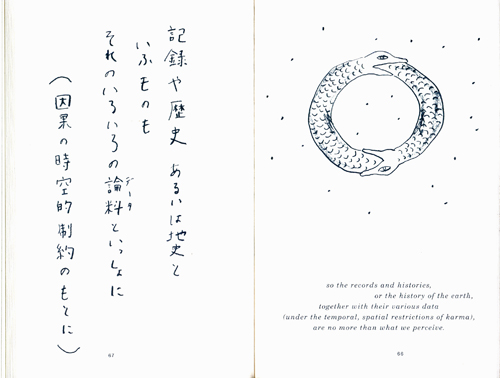 記録や歴史 あるいは地史と
いふものも
それのいろいろの論料といっしょに
データ
（因果の時空的制約のもとに）
67
so the records and histories,
or the history of the earth,
together with their various data
(under the temporal, spatial restrictions of karma),
are no more than what we perceive.
66